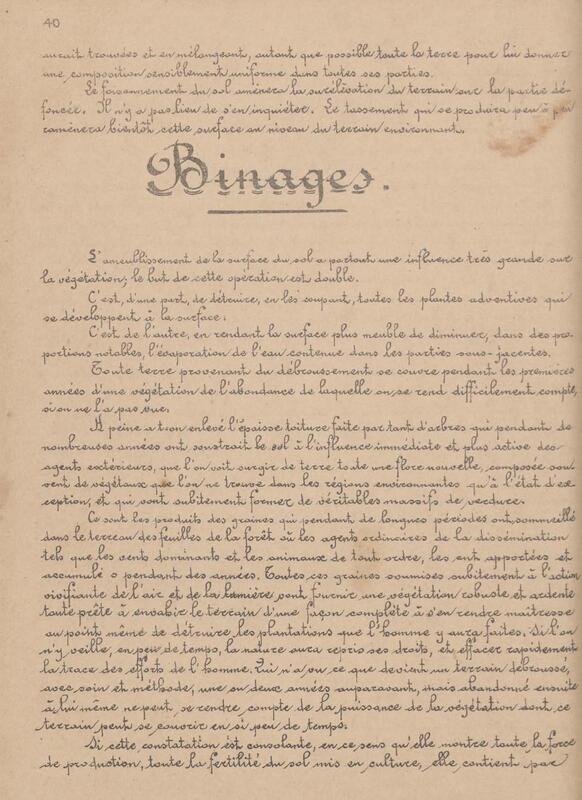 40
aurait trouvées et en mélangeant, autant que possible toute la terre pour lui donner
une composition sensiblement uniforme dans toutes ses parties.
Le foisonnement du sol amènera la surélévation du terrain sur la partie dé-
foncée. Il n'y a pas lieu de s'en inquiéter. Le tassement qui se produira peu à peu
ramènera bientôt cette surface au niveau du terrain environnant.
Binages.
L'ameublissement de la surface du sol a partout une influence très grande sur
la végétation; le but de cette opération est double.
C'est, d'une part, de détruire, en les coupant, toutes les plantes adventives qui
se développent à la surface;
C'est de l'autre, en rendant la surface plus meuble de diminuer, dans des pro-
portions notables, l'évaporation de l'eau contenue dans les parties sous-jacentes.
Toute terre provenant du débroussement se couvre pendant les premières
années d'une végétation de l'abondance de laquelle on se rend difficilement compte,
si on ne l'a pas vue.
A peine a t'on enlevé l'épaisse toiture faite par tant d'arbres qui pendant de
nombreuses années ont soustrait le sol à l'influence immédiate et plus active des
agents extérieurs, que l'on voit surgir de terre toute une flore nouvelle, composée sou-
vent de végétaux que l'on ne trouve dans les régions environnantes qu'à l'état d'ex-
ception, et qui vont subitement former de véritables massifs de verdure.
Ce sont les produits des graines qui pendant de longues périodes ont sommeillé
dans le terreau des feuilles de la forêt où les agents ordinaires de la dissémination
tels que les vents dominants et les animaux de tout ordre, les ont apportées et
accumulé s pendant des années. Toutes ces graines soumises subitement à l'action
vivifiante de l'air et de la lumière vont fournir une végétation robuste et ardente
toute prête à envahir le terrain d'une façon complète à s'en rendre maîtresse
au point même de détruire, les plantations que l'homme y aura faites. Si l'on
n'y veille, en peu de temps, la nature aura repris ses droits, et effacer rapidement
la trace des efforts de l'homme. Qui n'a vu ce que devient un terrain débroussé,
avec soin et méthode, une ou deux années auparavant, mais abandonné ensuite
à lui même ne peut se rendre compte de la puissance de la végétation dont ce
terrain peut se couvrir en si peu de temps.
Si cette constatation est consolante, en ce sens qu'elle montre toute la force
de production, toute la fertilité du sol mis en culture, elle contient par